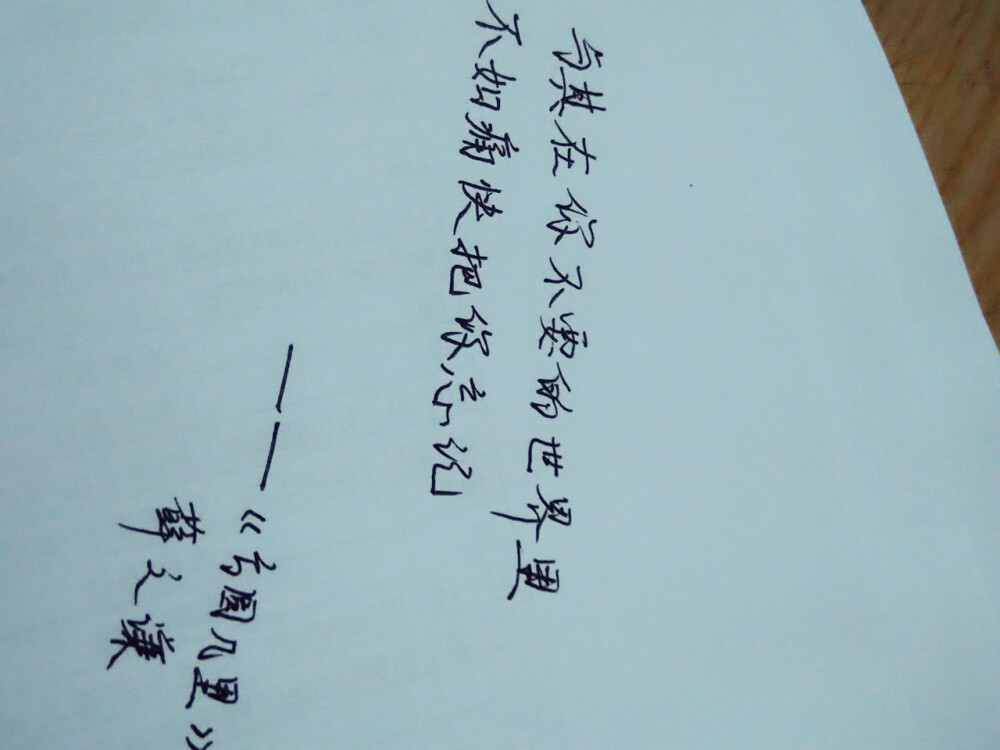 与其在你不要的世界里
不如痛快把你忘记
——《方圆几里》
薛之谦